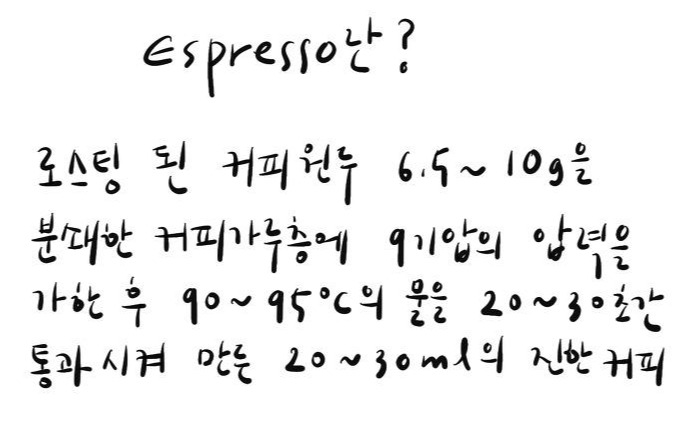 Espresso란?
로스팅 된 커피원두 6.5~10g을
분쇄한 커피가루층에 9기압의 압력을
가한 후 90~95°C의 물을 20~30초간
통과시켜 만든 20~30ml의 진한 커피